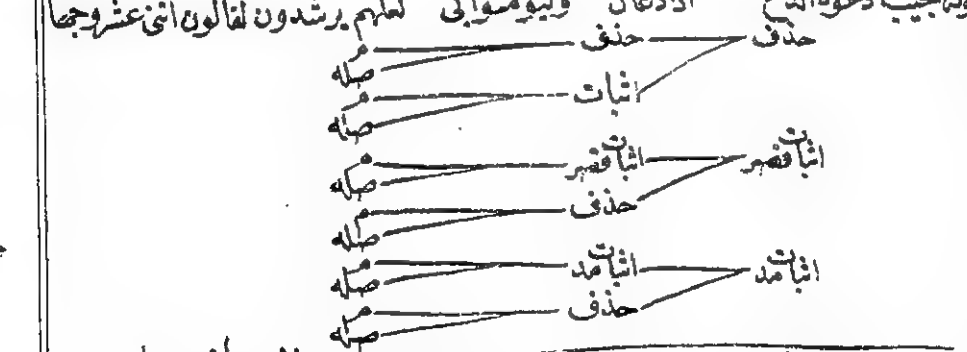 دعوة الداع وليؤمنوا بى لعلهم يرشدون لقالون اثنى عشر وجها
حذف حذف م
صله
اثبات م
صله
اثبات قصر اثبات قصر م
صله
حذف م
صله
اثبات مد اثبات مد م
صله
حذف م
صله